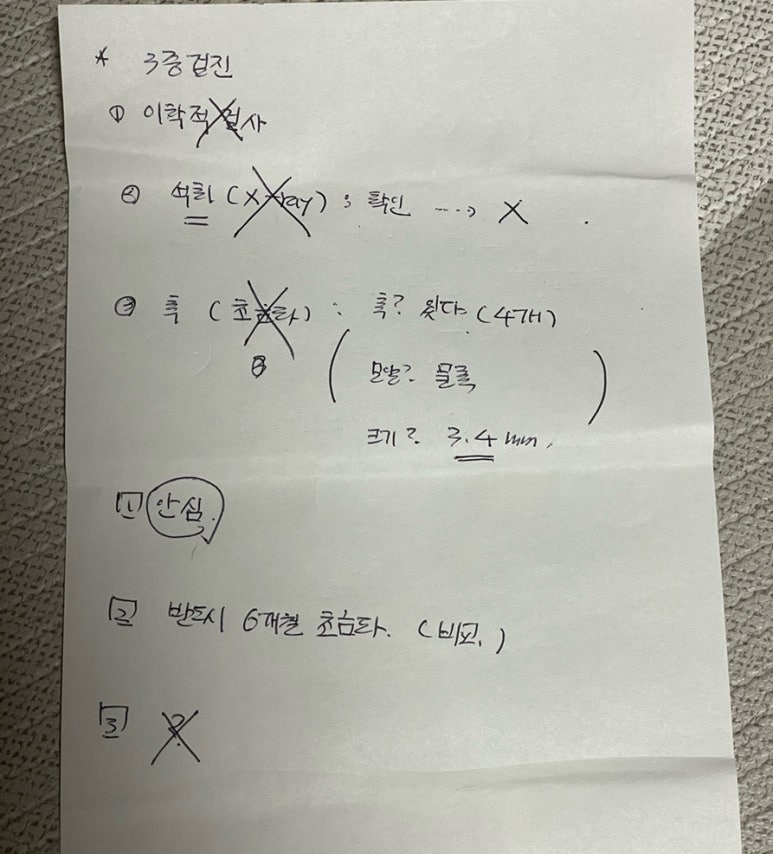 * 3중검진
① 이학적검사
② 석회 (X-ray) : 확인 ---> X
③ 혹 (초음파) : 혹? 있다 (4개)
모양? 물혹
크기? 3.4 mm.
1 안심.
2 반드시 6개월 초음파. (비교.)
3 ?